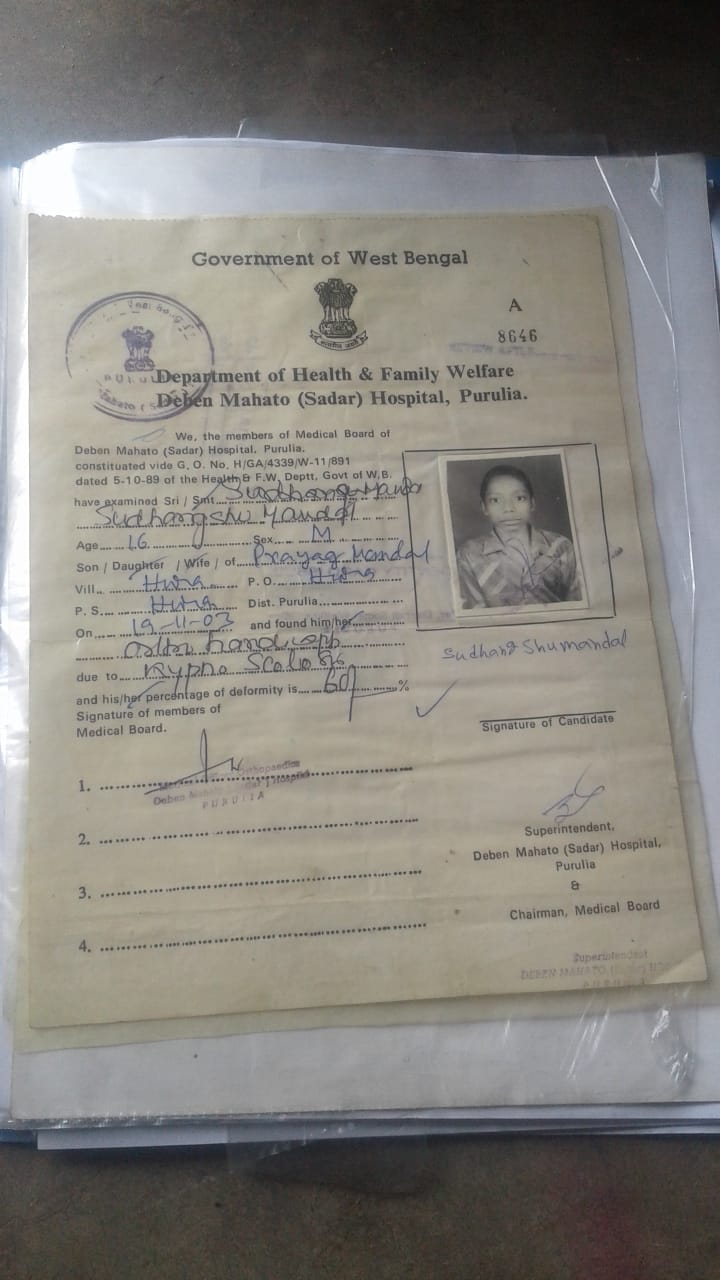 Government of West Bengal
A
8646
PURUL
Department of Health & Family Welfare
Deben Mahato (Sadar) Hospital, Purulia.
We, the members of Medical Board of
Deben Mahato (Sadar) Hospital, Purulia.
constituated vide G. O. No. H/GA/4339/W-11/891
dated 5-10-89 of the Health & F.W. Deptt, Govt of W.B.
have examined Sri / Smt.
Sudhangshu Mandal
Age 16 Sex M
Son / Daughter / Wife / of Prayag Mandal
Vill. Hura P. O. Hura
P. S. Hura Dist. Purulia
On 19-11-03 and found him/her
due to Kypho
and his/her percentage of deformity is 60 %
Sudhangshu mandal
Signature of Candidate
Signature of members of
Medical Board.
1.
Orthopaedics
Deben Mahato (Sadar) Hospital
PURULIA
2.
3.
4.
Superintendent,
Deben Mahato (Sadar) Hospital,
Purulia
&
Chairman, Medical Board
Superintendent
DEBEN MAHATO